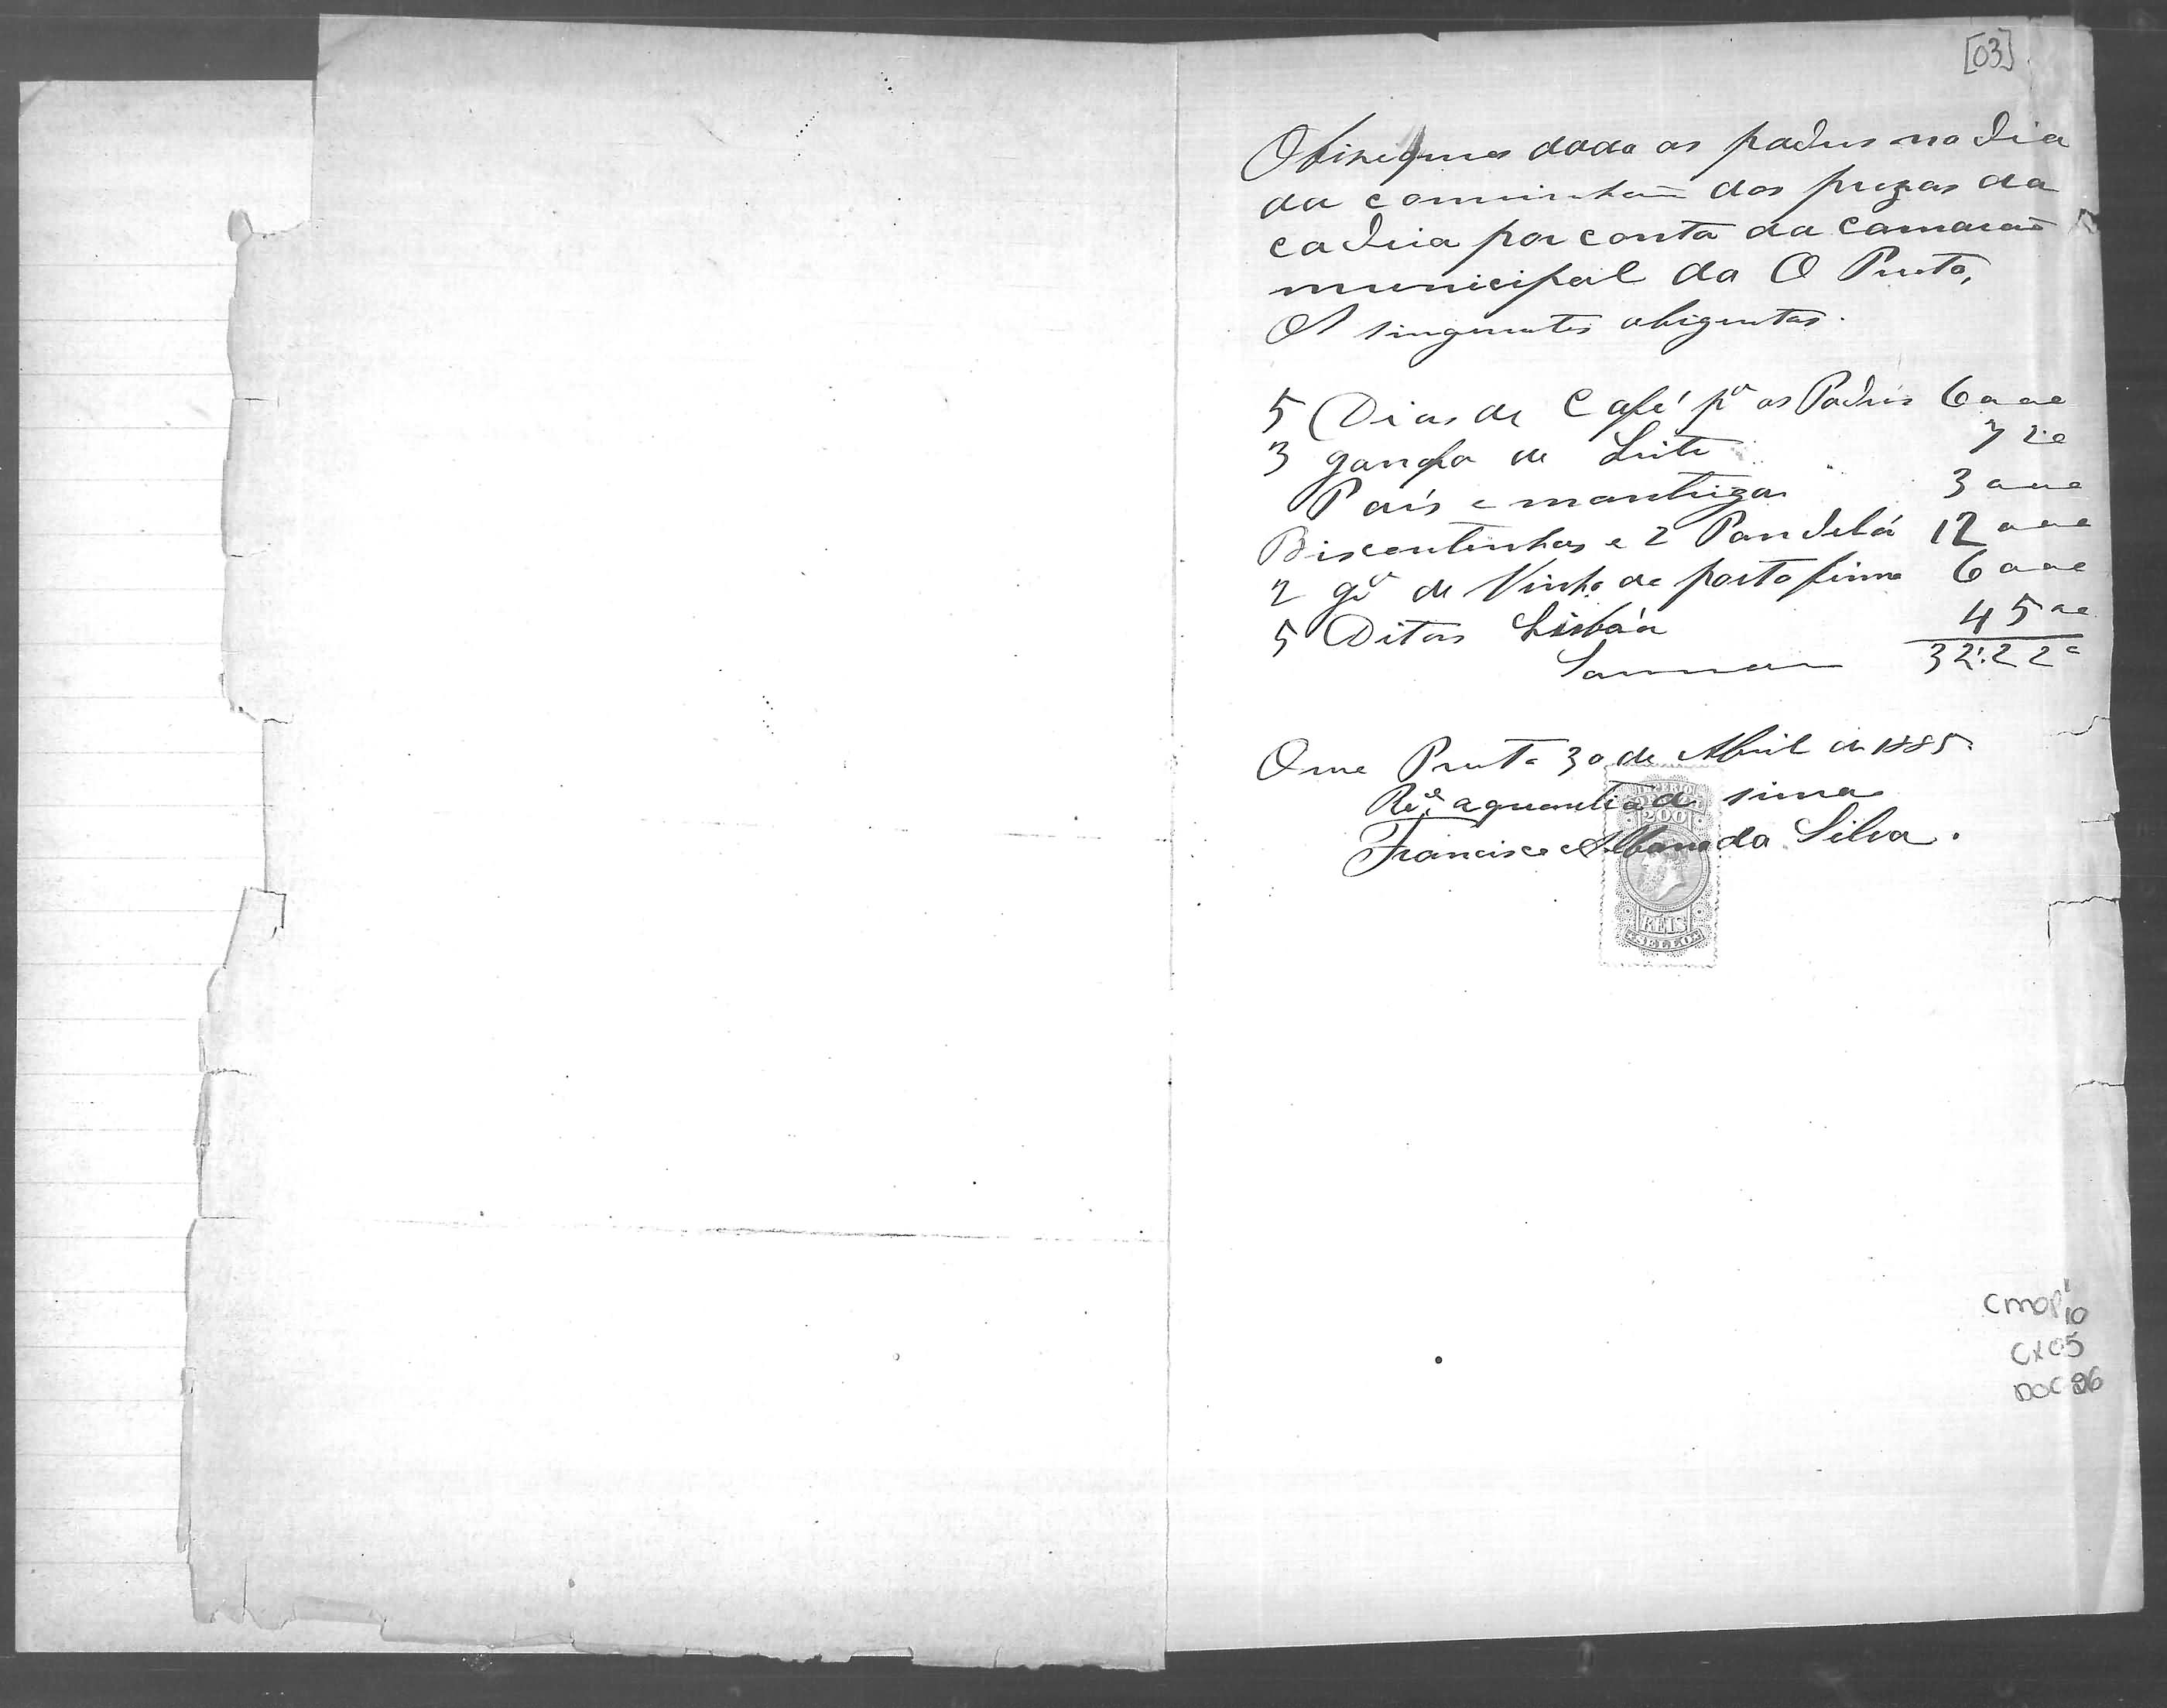 [03]
Obisequios dado os padres no dia
da cominhaõ dos prezos da
cadeia por conta da camara
municipal da O Preto,
Os singuntes
5 Dias de Café pª os Padres 6000
3 garrafa de Leite 720
Pais e manteiga 3000
Biscoutinhos e 2 Pandeló 12000
2 gª de Vinho do porto finno 6000
5 Ditas Lisbôa 4500
Somma 32:220
Ouro Preto 30 de Abril de 1885
Re.ce a quantia a sima
Francisco Albano da Silva.
IMPERIO
200
RÉIS
SELLO
CMOP
10
CX 05
DOC 26